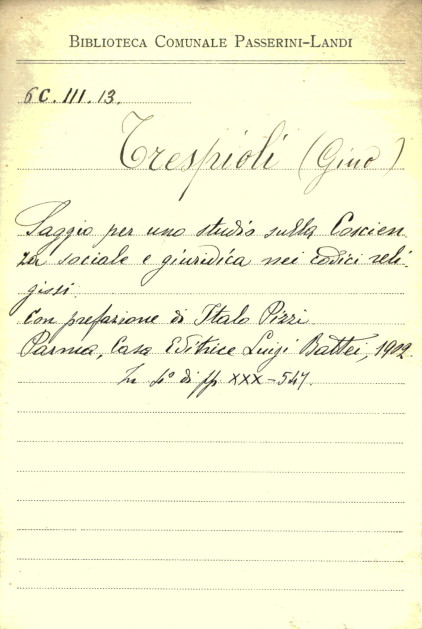 BIBLIOTECA COMUNALE PASSERINI-LANDI
6C. III. 13.
Trespioli (Gino)
Saggio per uno studio sulla Coscien
za sociale e giuridica nei codici reli-
giosi.
con prefazione di Italo Pizzi
Parma, Casa Editrice Luigi Battei, 1902.
In 4° di pp XXX-547.